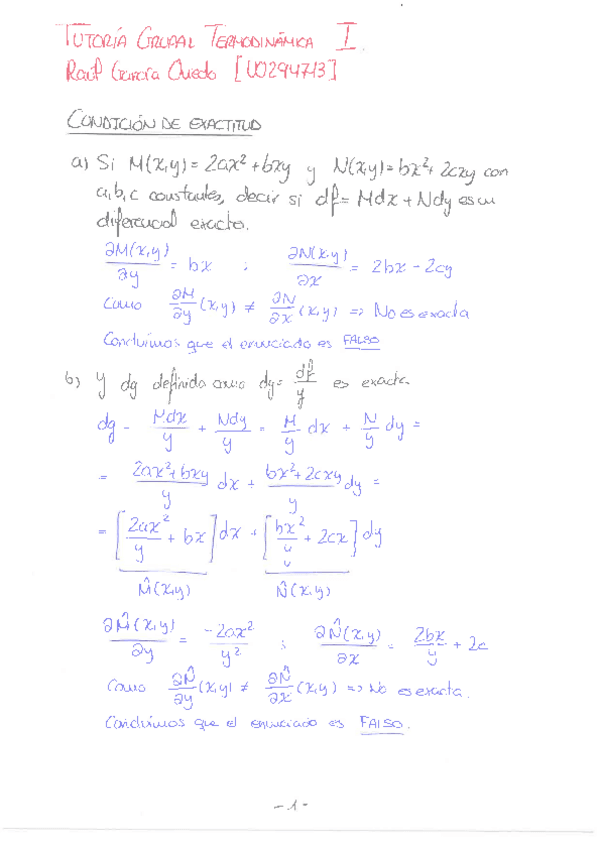 TUTORÍA GRUPAL TERMODINÁMICA I.
Raúl García Oviedo [UO294713]
CONDICIÓN DE EXACTITUD
a) Si M(x,y) = 2ax² + bxy y N(x,y) = bx² + 2cxy con
a, b, c constantes, decir si df = Mdx + Ndy es un
diferencial exacta.
∂M(x,y)/∂y = bx ; ∂N(x,y)/∂x = 2bx - 2cy
Como ∂M/∂y (x,y) ≠ ∂N/∂x (x,y) => No es exacta
Concluimos que el enunciado es FALSO
b) Y dg definida como dg = df/y es exacta
dg = Mdx/y + Ndy/y = M/y dx + N/y dy =
= (2ax² + bxy)/y dx + (bx² + 2cxy)/y dy =
= [2ax²/y + bx] dx + [bx²/y + 2cx] dy
M̂(x,y) N̂(x,y)
∂M̂(x,y)/∂y = -2ax²/y² ; ∂N̂(x,y)/∂x = 2bx/y + 2c
Como ∂N̂/∂y (x,y) ≠ ∂N̂/∂x (x,y) => No es exacta.
Concluimos que el enunciado es FALSO.
- 1 -